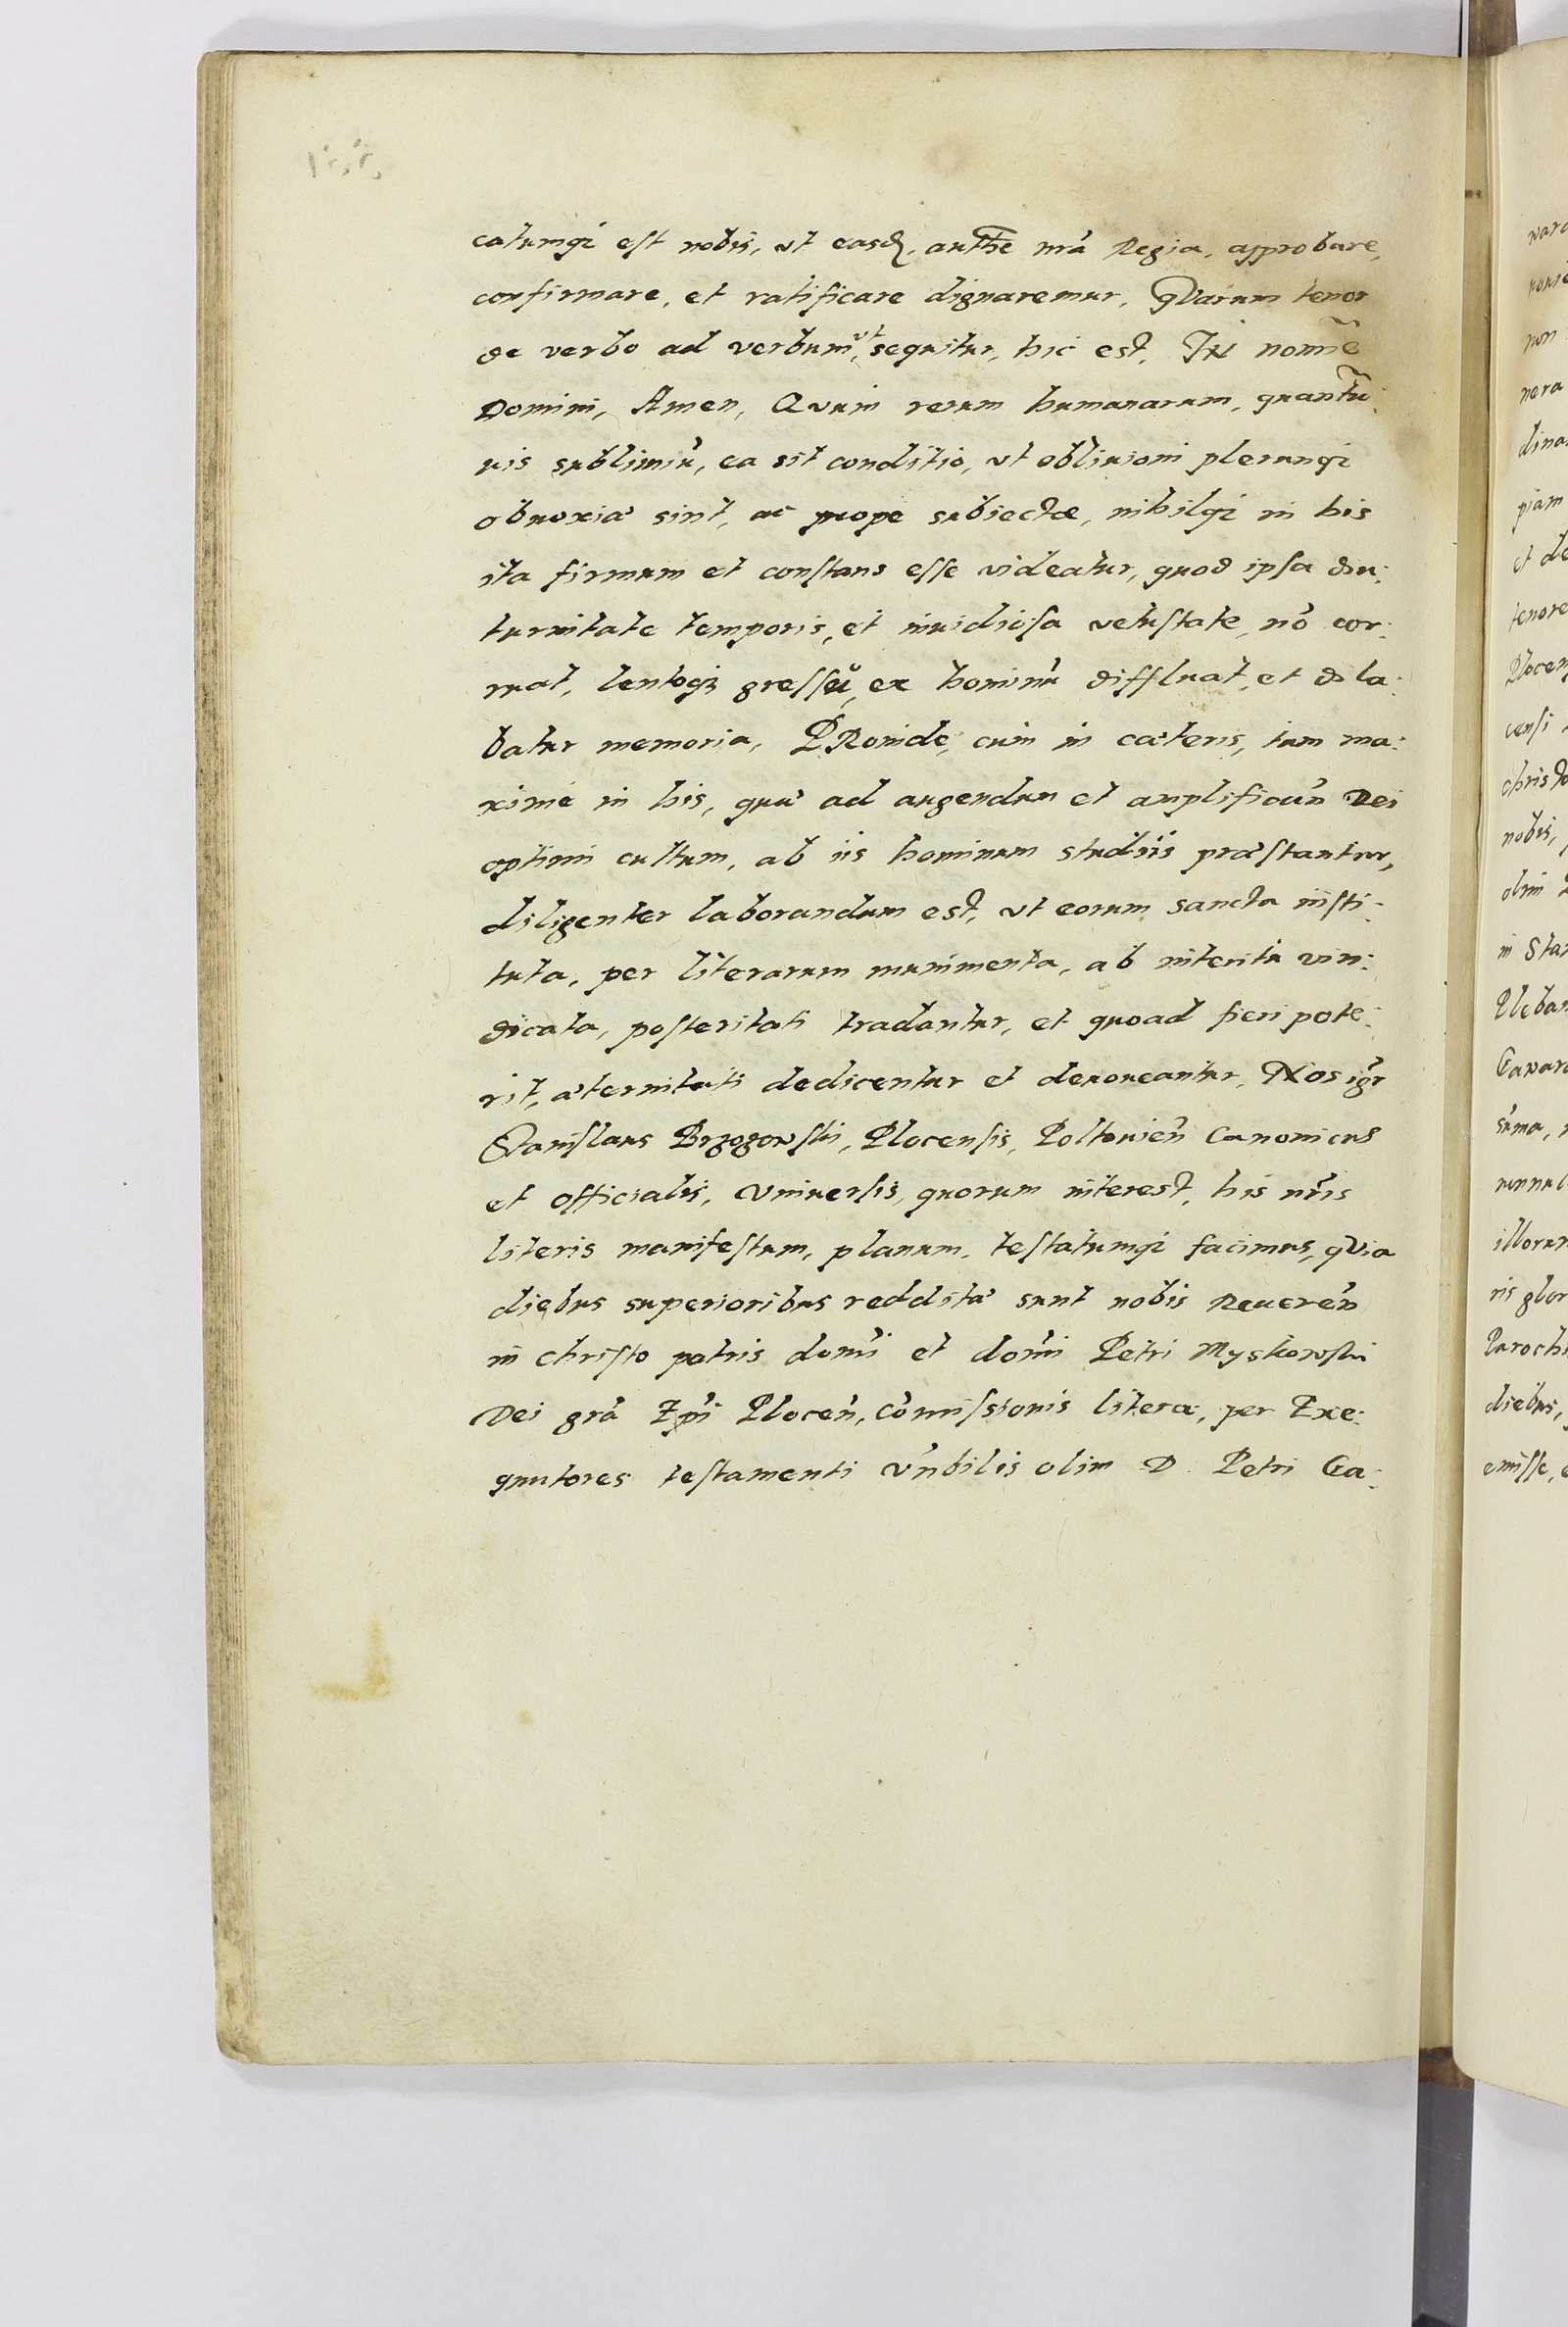 catumq; est nobis, vt easd, authe nrã Regia, approbare,
confirmare, et ratificare dignaremur, qVarum tenor
de verbo ad verbum vt sequitur, hic est, IN nomiẽ
Domini, Amen, Qvum rerum humanarum, quantũ:
uis sublimiũ, ea sit conditio, vt obliuioni plerunq;
obnoxiæ sint, ac prope subiectæ, nihilq; in his
ita firmum et constans esse videatur, quod ipsa diu:
turnitate temporis, et inuidiosa vetustate, nõ cor:
ruat, lentoq; gressu, ex hominũ diffluat, et dila:
batur memoria, PRoinde, cum in cæteris, tum ma:
ximè in his, quæ ad augendum et amplificañ Dei
optimi cultum, ab iis hominum studiis præstantur,
diligenter laborandum est, vt eorum sancta insti:
tuta, per literarum munimenta, ab interitu vin:
dicata, posteritati tradantur, et quoad fieri pote:
rit, æternitati dedicentur et deuoueantur, Nos igr
Stanislaus Brzozowski, Plocensis, Poltouieñ Canonicus
et officialis, Vniuersis, quorum interest, his nris
literis manifestum, planum, testatumq; facimus, qVia
diebus superioribus redditæ sunt nobis Reuereñ
in Christo patris domi et domi Petri Myskowski
Dei grã Epi Ploceñ, cõmissionis literæ, per Exe:
quutores testamenti vnbilis olim D. Petri Ga:
waro
non
nera
dina
piam
et de
tenore
Plocen
censi
christo
nobis,
olim
in Sta
Pleban
Gawaro
suma,
nonnul
illorum
ris glor
Paroch
diebus,
emisse,